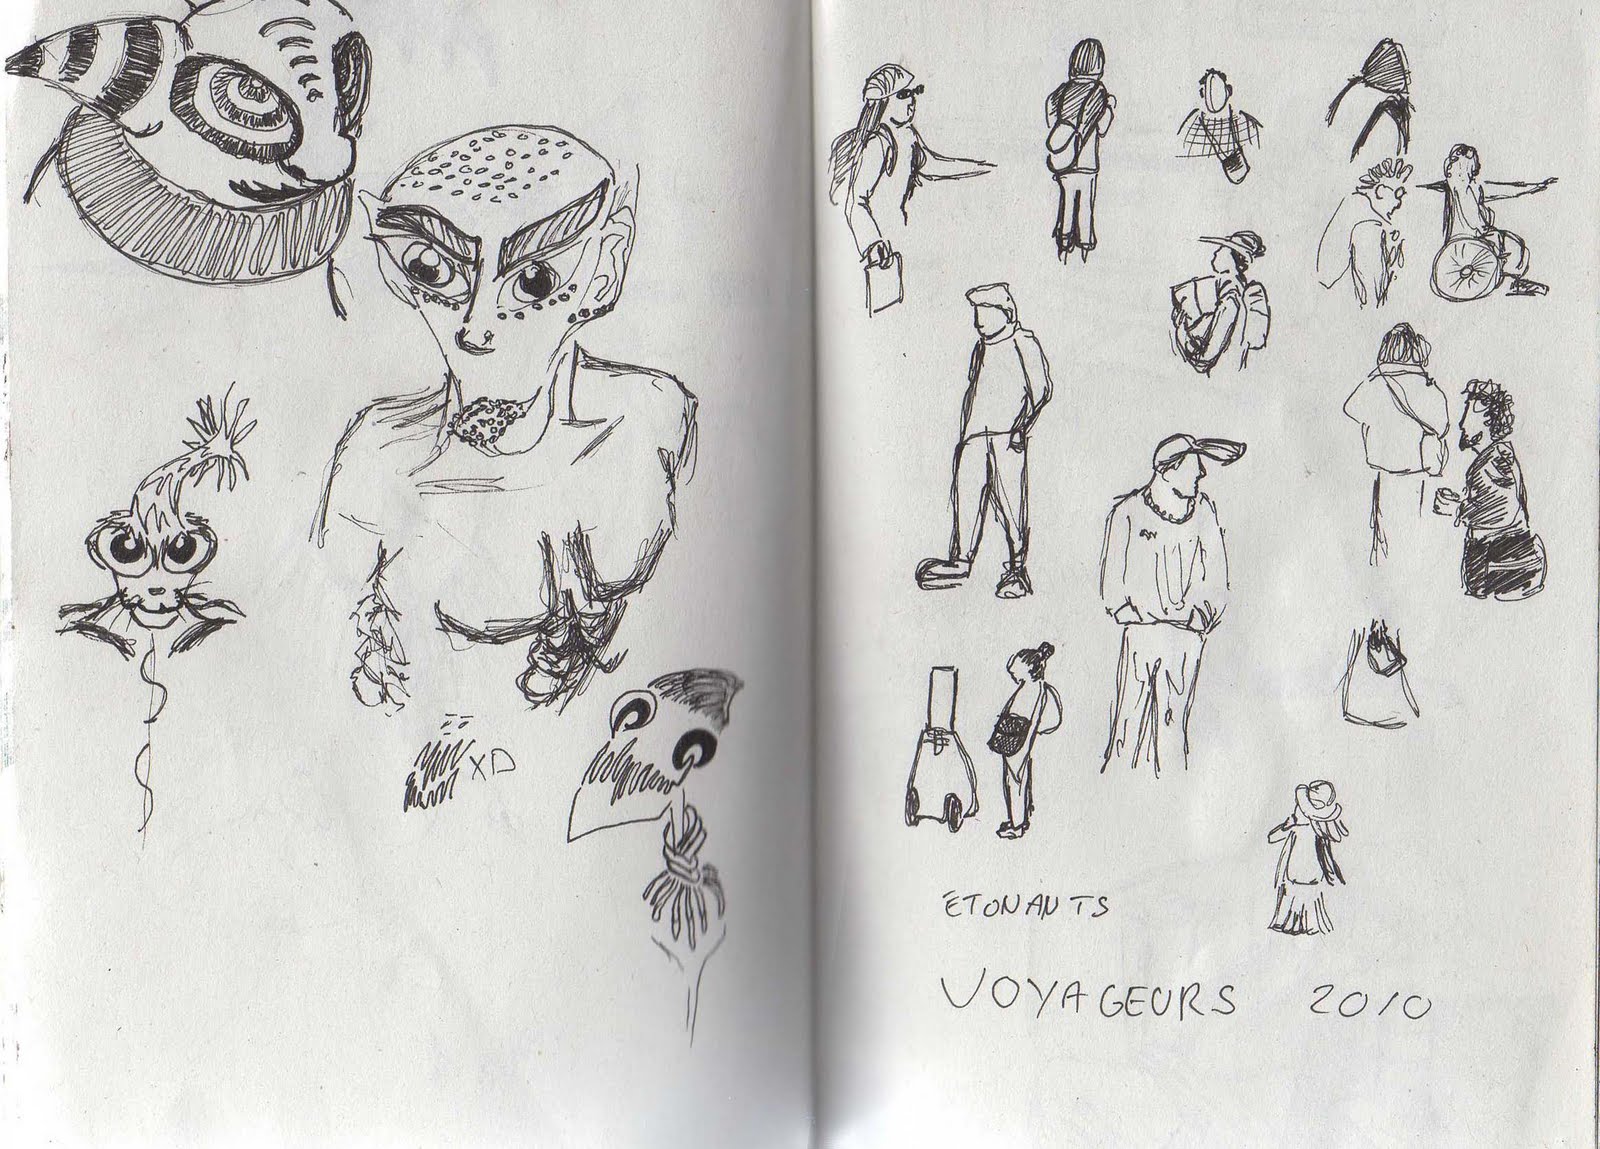 XD
ETONANTS
VOYAGEURS 2010